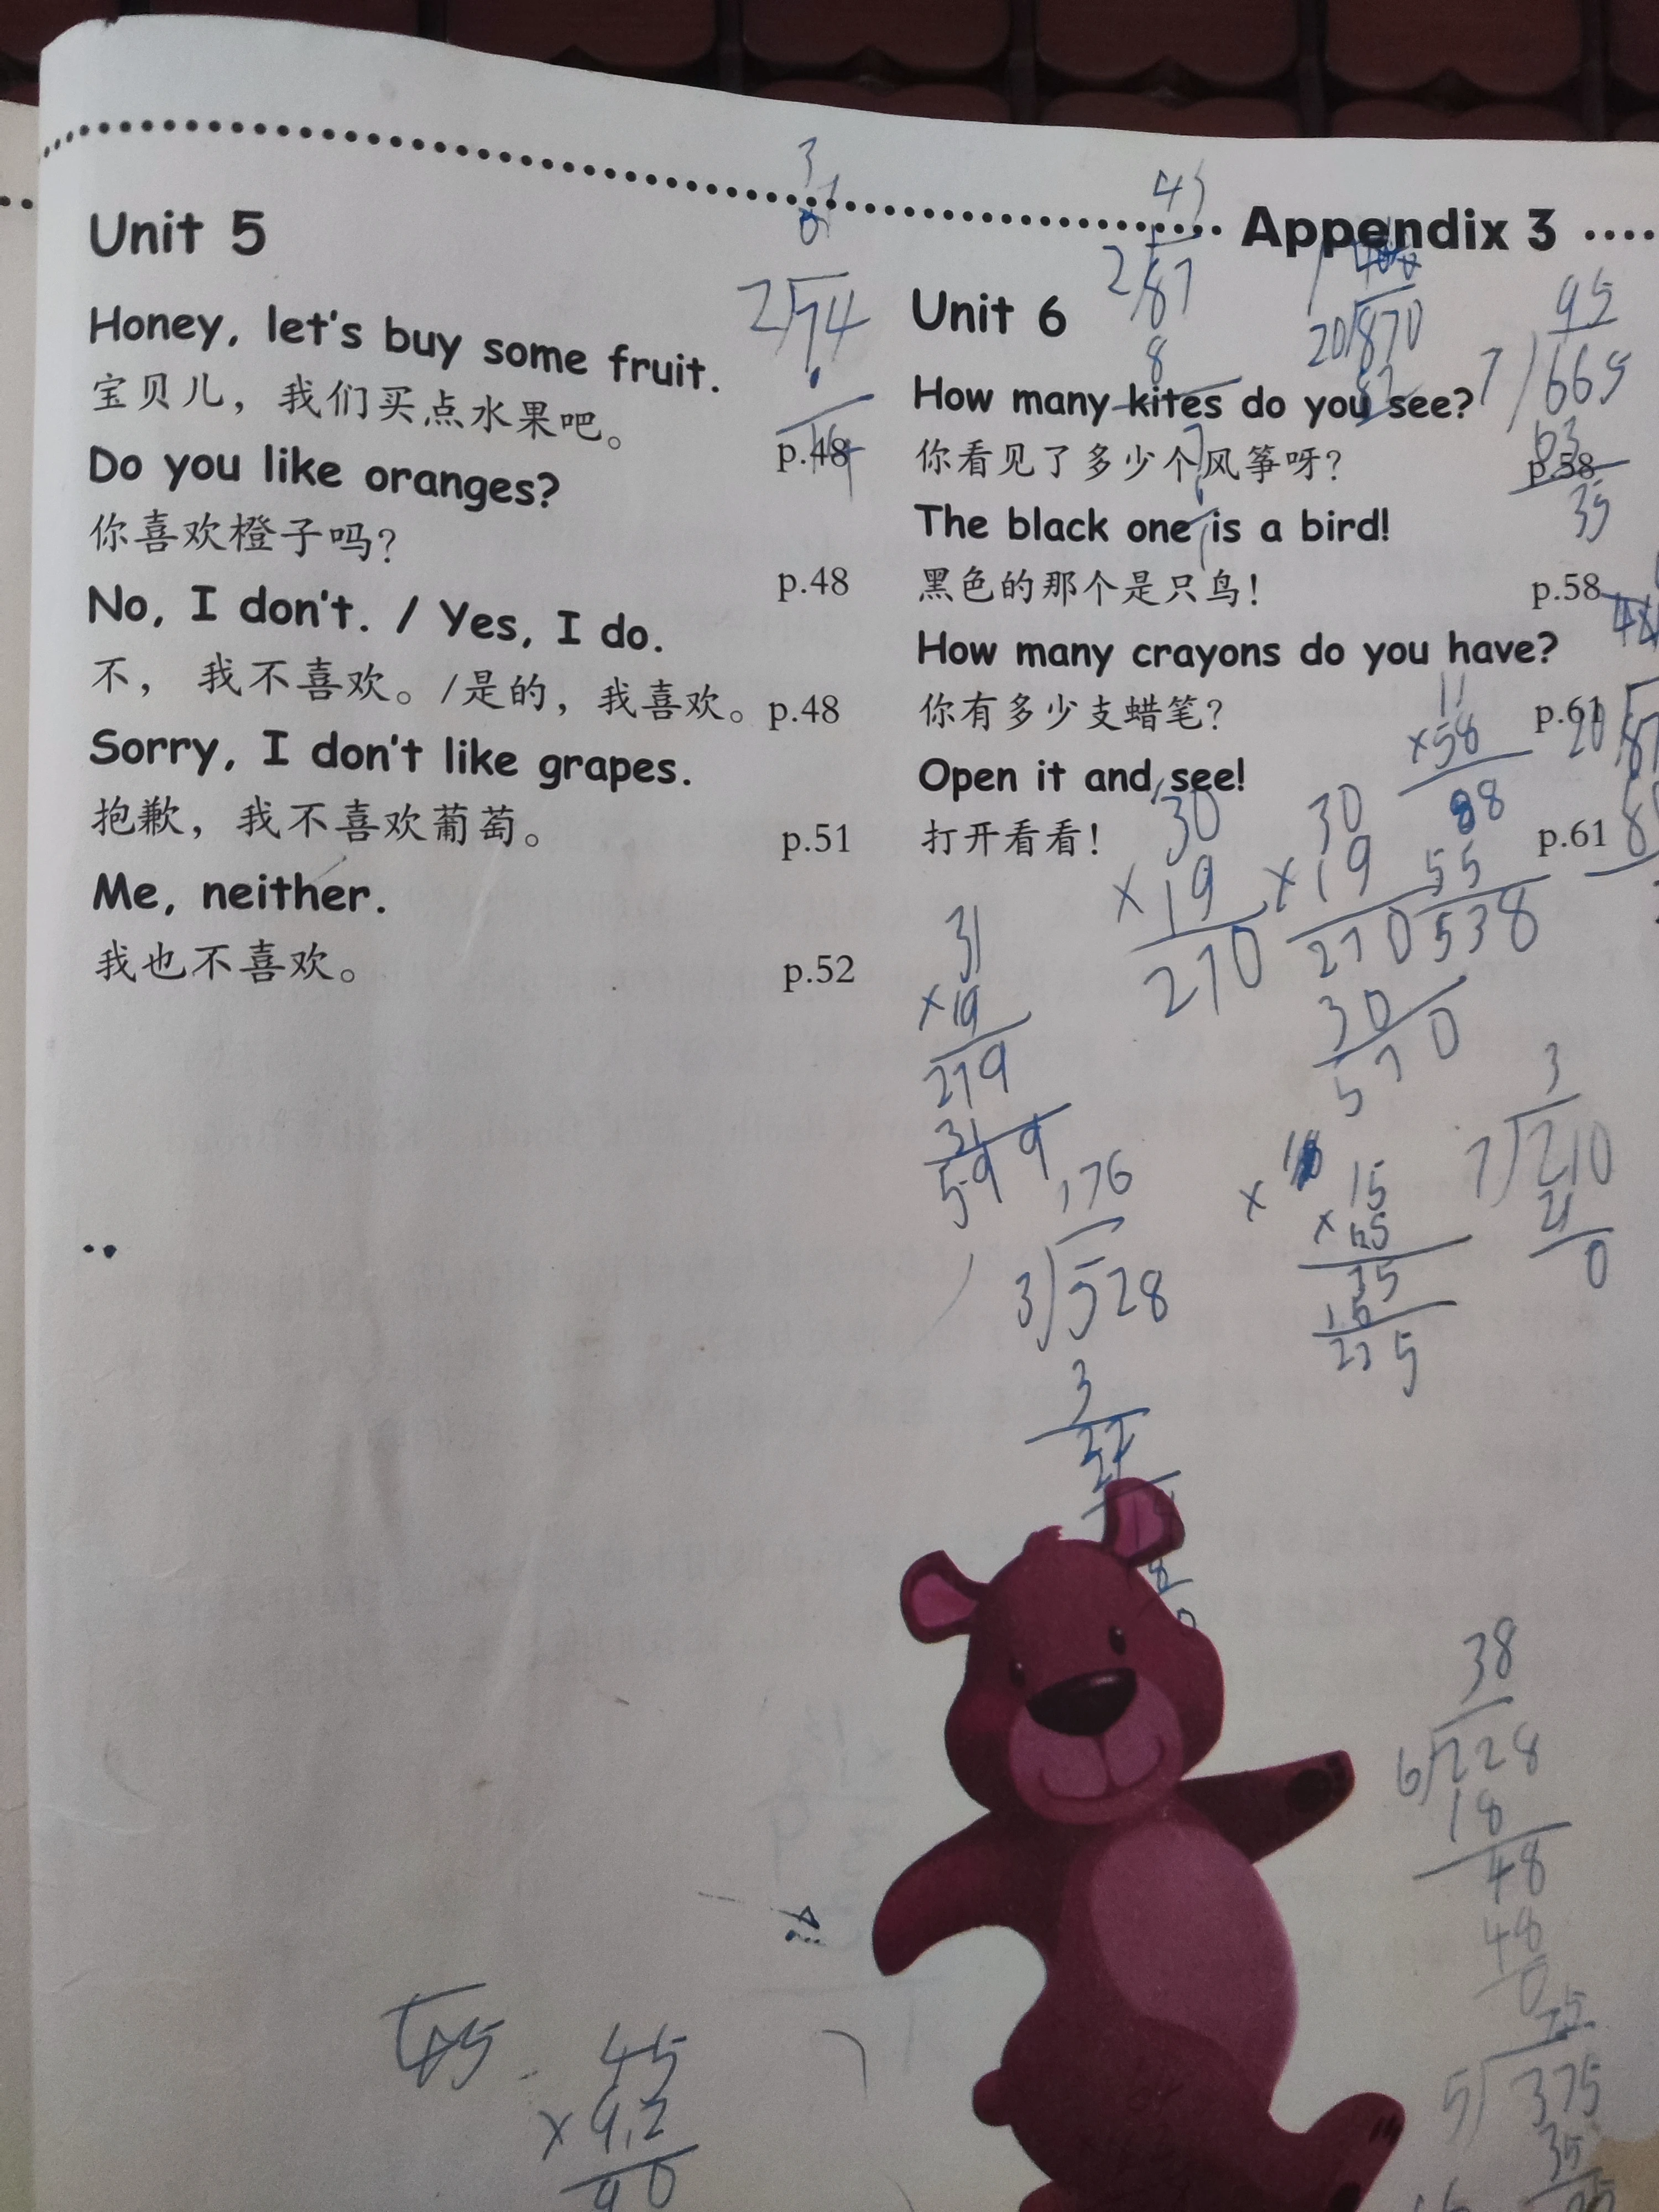 Appendix 3
Unit 5
Honey, let's buy some fruit.
宝贝儿，我们买点水果吧。 p.48
Do you like oranges?
你喜欢橙子吗? p.48
No, I don't. / Yes, I do.
不， 我不喜欢。/是的，我喜欢。 p.48
Sorry, I don't like grapes.
抱歉，我不喜欢葡萄。 p.51
Me, neither.
我也不喜欢。 p.52
Unit 6
How many kites do you see?
你看见了多少个风筝呀? p.58
The black one is a bird!
黑色的那个是只鸟! p.58
How many crayons do you have?
你有多少支蜡笔? p.61
Open it and see!
打开看看! p.61
2 74
2 87
8
20 870
95
7 665
63
35
11
×58
88
55
538
30
×19
270
30
×19
270
30
570
31
×19
279
31
599
176
3 528
3
22
21
8
15
×15
75
15
225
3
7 210
21
0
38
6 228
18
48
48
0
75
5 375
35
45
45
×9.2
90